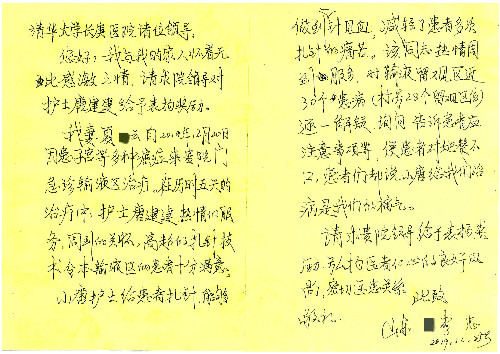 清华大学长庚医院诸位领导:
您好!我与我的家人怀着无
比感激之情,请求院领导对
护士唐建建给予表扬奖励。
我妻夏 云自2019年12月20日
因患 等多种 症来贵院门
急诊输液区治疗。在历时五天的
治疗中,护士唐建建热情的服
务、周到的关怀、高超的扎针技
术令本输液区的患者十分满意。
小唐护士给患者扎针,能够
做到针针见血,减轻了患者多次
扎针的痛苦。该同志热情周
到 服务,对输液留观区近
30个 患病(标 28个 )
逐一解疑、询问、告诉患者应
注意事项等,使患者对她赞不
口,患者们都说小唐给我们治
病是我们的福气。
请求贵院领导给予表扬奖
励,弘扬医者仁心的良好风
尚,密切医患关系。
此致
敬礼
李
2019.12.25